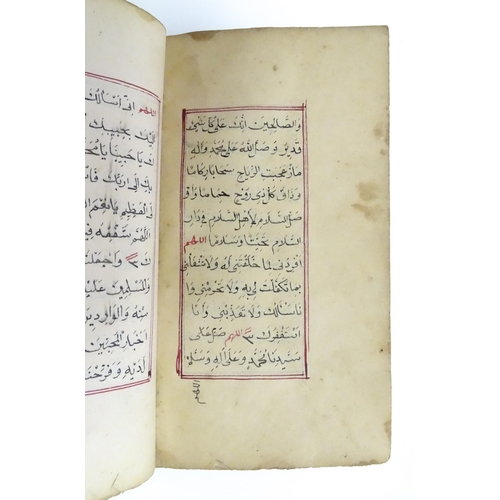 والصالحين انك على كل شئ
قدير وصل الله على محمد واله
ما زعجت الرياح سحابا ركاما
وذاق كل ذي روح حماما واو
صل السلام لاهل السلام في دار
السلام تحيتا وسلاما اللهم
افردني لما خلقتني له ولا تشغلني
بما تكفلت لي به ولا تحرمني وا
نا سالك ولا تعذبني وانا
استغفرك ٣ اللهم صل على
سيدنا محمد وعلى اله وسلم
اللهم
اللهم اني اسالك
اليك بحبيبك
يا حبيبنا يا
بك الى ربك
لى العظيم يا نعم
اللهم شفعه
٣ واجعلنا
والمسلمين عليه
منه والواردين
اخيار المحبين
لديه وفرحنا